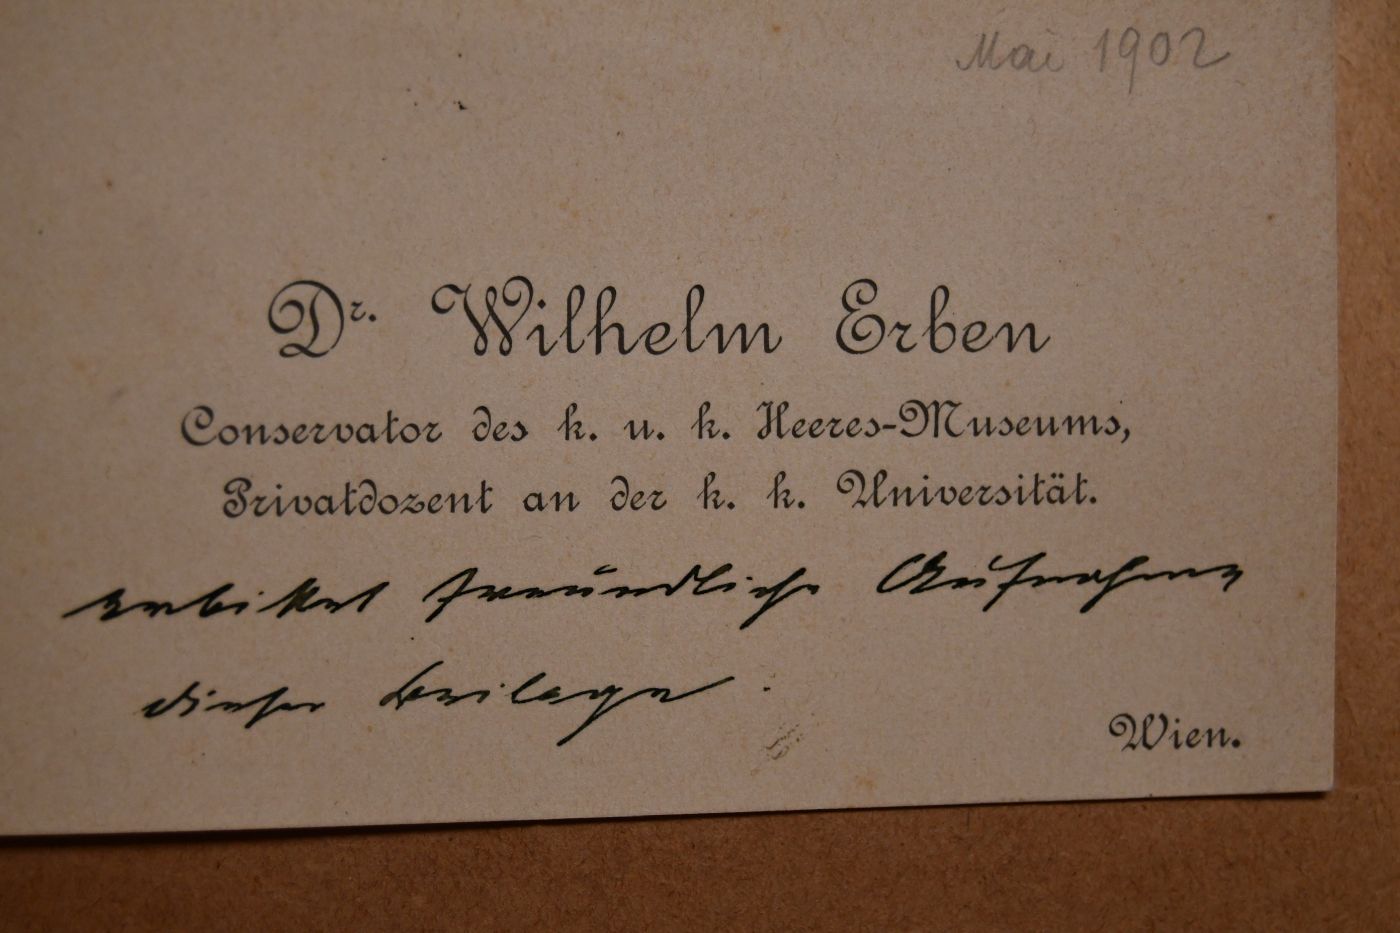 Mai 1902
Dr. Wilhelm Erben
Conservator des k. u. k. Heeres-Museums,
Privatdozent an der k. k. Universität.
erbittet freundliche Aufnahme
dieser Beilage.
Wien.